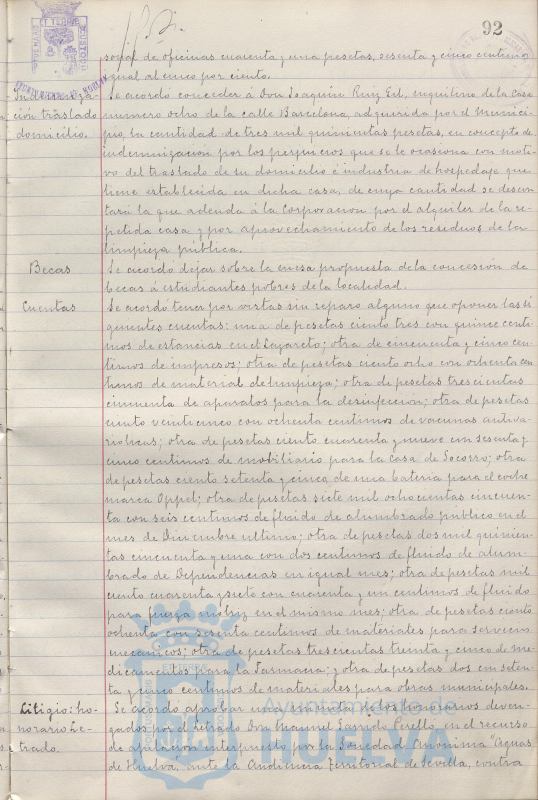 92
sonal de oficinas cuarenta y una pesetas, sesenta y cinco centimos
igual al cinco por ciento.
Indemniza-
ción traslado
domicilio.
Se acordó conceder á Don Joaquin Ruiz Ert, inquilino de la casa
numero ocho de la calle Barcelona, adquirida por el Munici-
pio, la cantidad de tres mil quinientas pesetas, en concepto de
indemnización por los perjuicios que se le ocasiona con moti-
vo del traslado de su domicilio é industria de hospedaje que
tiene establecida en dicha casa, de cuya cantidad se descon-
tará la que adeuda á la Corporacion por el alquiler de la re-
petida casa y por aprovechamiento de los residuos de la
limpieza pública.
Becas
Se acordo dejar sobre la mesa propuesta de la concesión de
becas á estudiantes pobres de la localidad.
Cuentas
Se acordó tener por vistas sin reparo alguno que oponer las si-
guientes cuentas: una de pesetas ciento tres con quince centi-
mos de estancias en el Lazareto; otra de cincuenta y cinco cen-
timos de impresos; otra de pesetas ciento ocho con ochenta cen-
timos de material de limpieza; otra de pesetas trescientas
cincuenta de aparatos para la desinfección; otra de pesetas
ciento veinticinco con ochenta centimos de vacunas antiva-
riolicas; otra de pesetas ciento cuarenta y nueve con sesenta y
cinco centimos de mobiliario para la Casa de Socorro; otra
de pesetas ciento setenta y cinco, de una bateria para el coche
marca Oppel; otra de pesetas siete mil ochocientas cincuen-
ta con seis centimos de fluido de alumbrado público en el
mes de Diciembre ultimo; otra de pesetas dos mil quinien-
tas cincuenta y una con dos centimos de fluido de alum-
brado de Dependencias en igual mes; otra de pesetas mil
ciento cuarenta y siete con cuarenta y un centimos de fluido
para fuerza motriz en el mismo mes; otra de pesetas ciento
ochenta con sesenta centimos de materiales para servicios
mecanicos; otra de pesetas trescientas treinta y cinco de me-
dicamentos para la Farmacia; y otra de pesetas dos con seten-
ta y cinco centimos de materiales para obras municipales.
Litigio: ho-
norario Le-
trado.
Se acordó aprobar una minuta de los honorarios deven-
gados por el letrado Don Manuel Perelló, en el recurso
de apelación interpuesto por la Sociedad Anónima "Aguas
de Huelva, ante la Audiencia Territorial de Sevilla, contra
Ayuntamiento de
HUELVA